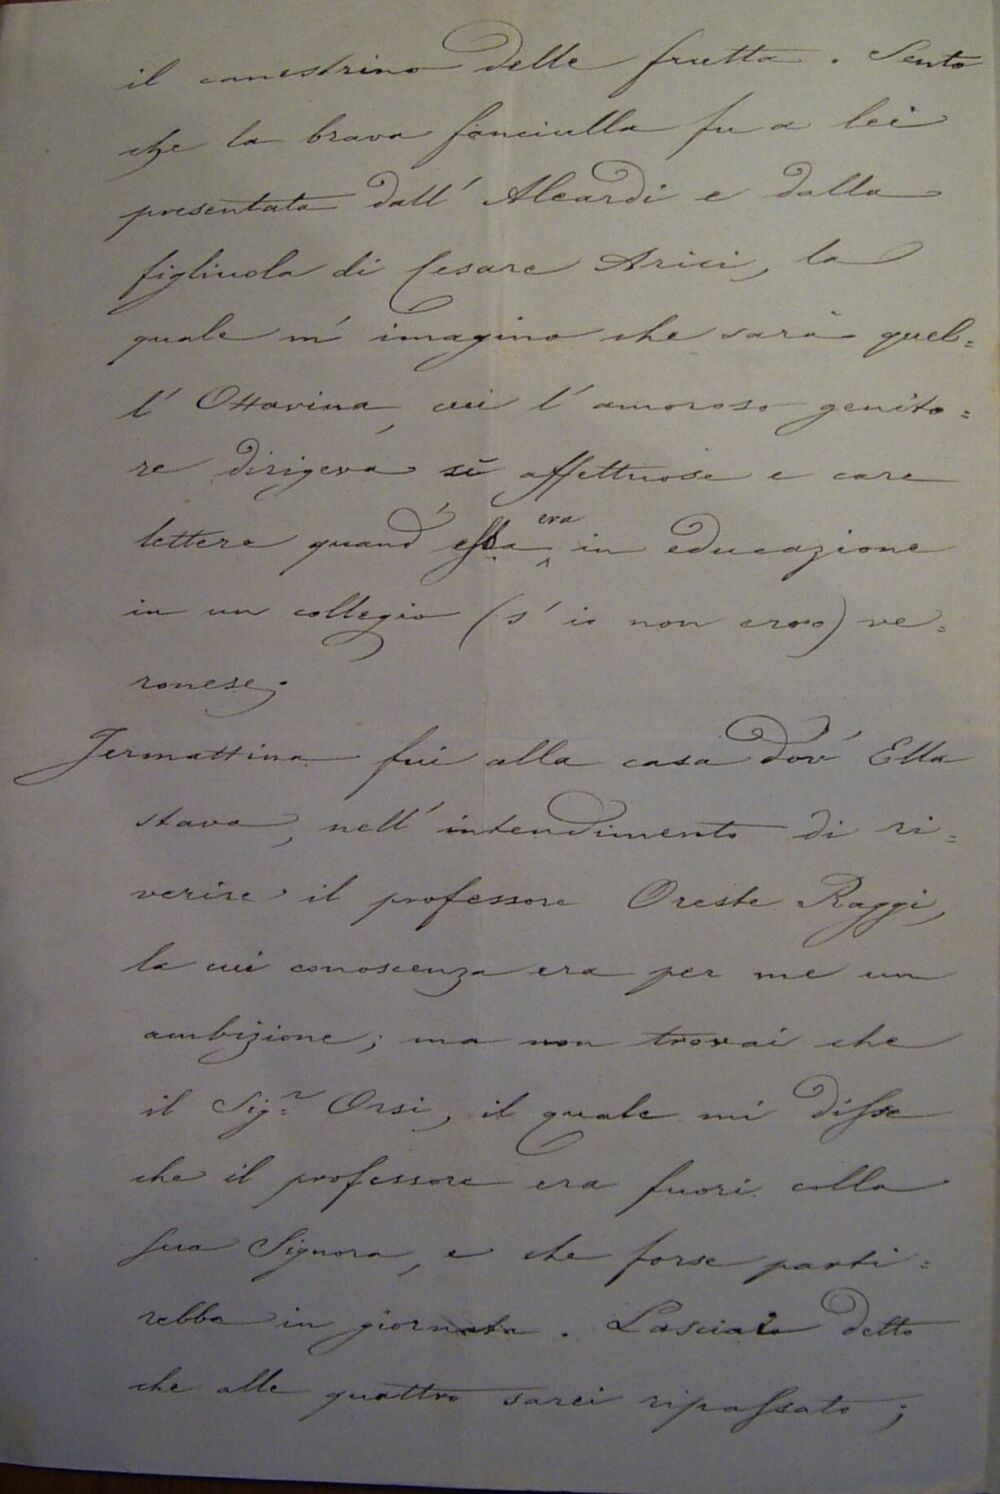 il canestrino delle frutta. Sento
che la brava fanciulla fu a lei
presentata dall' Aleardi e dalla
figliuola di Cesare Arici, la
quale m' imagino che sarà quel=
l' Ottavina, cui l' amoroso genito=
re dirigeva sì affettuose e care
lettere quand' essa era in educazione
in un collegio (s' io non erro) ve=
ronese.
Jermattina fui alla casa dov' Ella
stava, nell' intendimento di ri=
verire il professore Oreste Raggi,
la cui conoscenza era per me un
ambizione; ma non trovai che
il Sig.r Orsi, il quale mi disse
che il professore era fuori colla
sua Signora, e che forse parti=
rebbe in giornata. Lasciai detto
che alle quattro sarei ripassato;